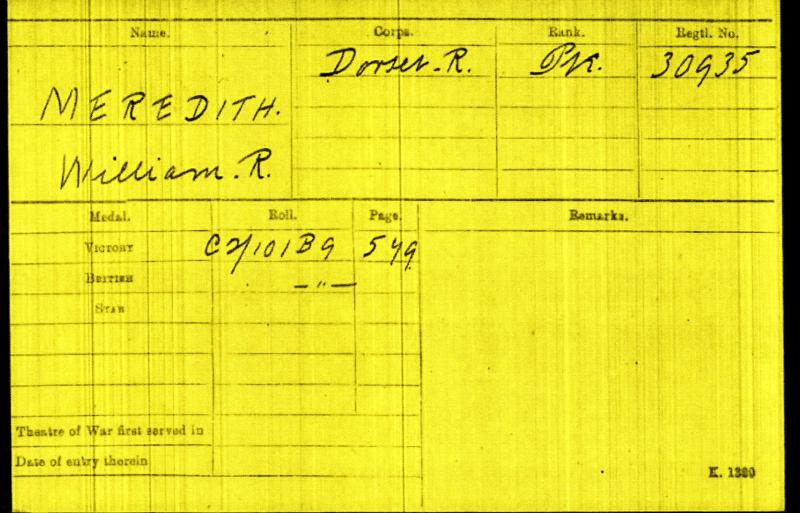 Name. Corps. Rank. Regtl. No.
Dorset. R. Pte. 30935
MEREDITH.
William. R.
Medal. Roll. Page. Remarks.
VICTORY C2/101B9 549
BRITISH —"—
STAR
Theatre of War first served in
Date of entry therein
K. 1380